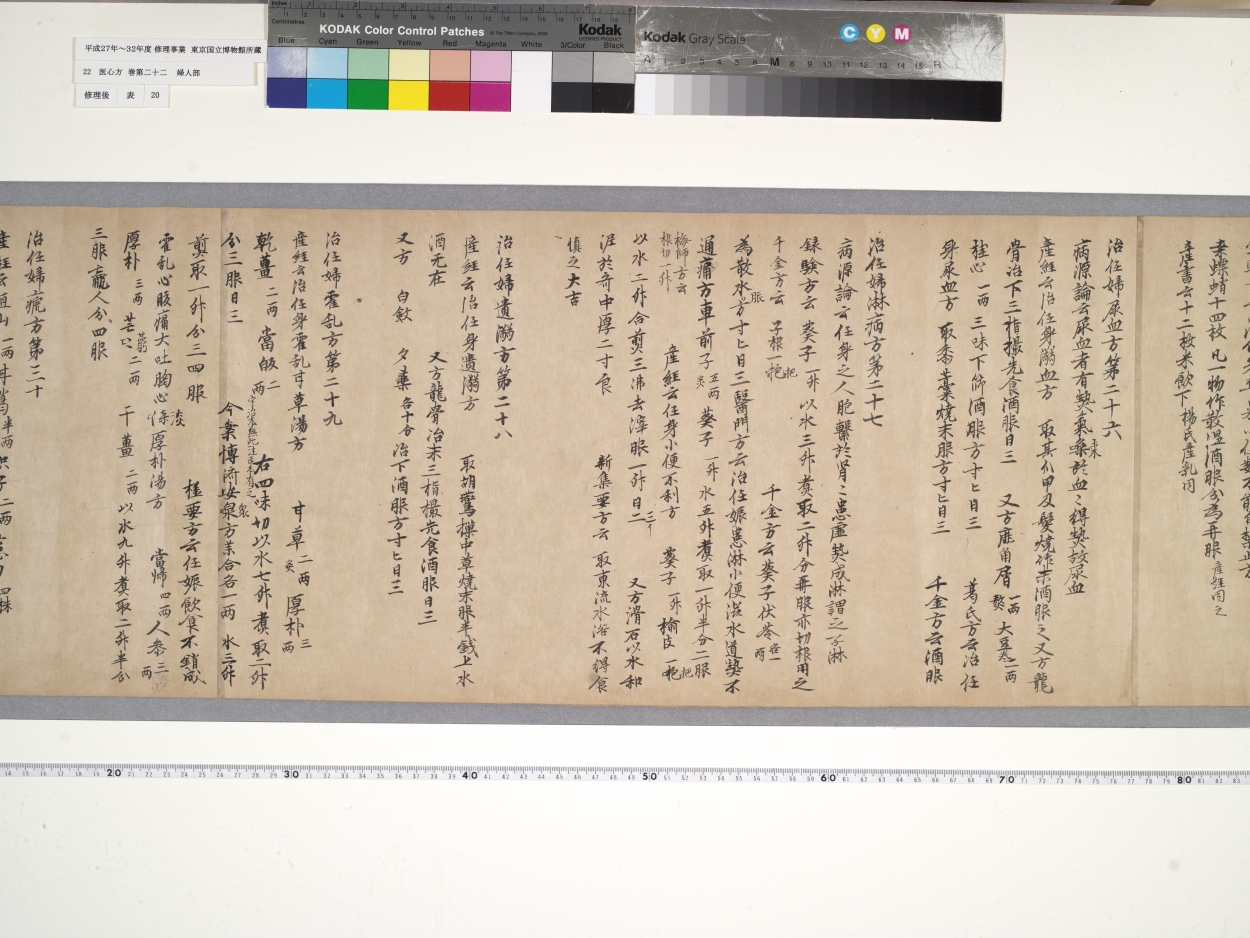 平成27年~32年度 修理事業 東京国立博物館所蔵
22 医心方 巻第二十二 婦人部
修理後 表 20
KODAK Color Control Patches
Kodak
LICENSED PRODUCT
Inches
Centimetres
Blue Cyan Green Yellow Red Magenta White 3/Color Black
Kodak Gray Scale
C Y M
A 1 2 3 4 5 6 M 8 9 10 11 12 13 14 15 B
桑螵蛸十四枚 凡一物作散温酒服分為再服 産経同之
産書云十二枚米飲下楊氏産乳同
治任婦尿血方第二十六
病源論云尿血者有熱氣乗於血々得熱故尿血
産経云治任身溺血方 取其爪甲及髪燒作末酒服之又方龍
骨治下三指撮先食酒服日三 又方鹿角屑一両 熬 大豆巻二両
桂心一両 三味下篩酒服方寸匕日三 葛氏方云治任
身尿血方 取黍藁燒末服方寸匕日三 千金方云酒服
治任婦淋病方第二十七
病源論云任身之人胞繋於腎々患虚熱成淋謂之子淋
録験方云 葵子一升 以水三升煮取二升分再服亦切根用之
千金方云 子根一把 千金方云葵子伏苓各一両
為散水服方寸匕日三醫門方云治任娠患淋小便澁水道熱不
通痛方車前子五両 葵子一升 水五升煮取一升半分二服
梅師方云 根切一升 産経云任身小便不利方 葵子一升 榆皮一把
以水二升合煎三沸去滓服一升日二 又方滑石以水和
泥於斉中厚二寸食 新集要方云 取東流水浴不得食
慎之大吉
治任婦遺溺方第二十八
産経云治任身遺溺方 取胡鷰巣中草燒末服半銭上水
酒无在 又方龍骨冶末三指撮先食酒服日三
又方 白斂 夕薬各十分 冶下酒服方寸匕日三
治任婦霍乱方第二十九
産経云治任身霍乱甘草湯方 甘草二両炙 厚朴三両
乾薑二両 當皈二両 右四味切以水七升煮取二升
分三服日三 今案博済安衆方 各一両 水三升
煎取一升分三四服 極要方云任娠飲食不消或
霍乱心腹痛大吐胸心淡 厚朴湯方 當帰四両人参三両
厚朴三両 芒々二両 干薑二両 以水九升煮取二升半分
三服羸人分四服
治任婦瘧方第三十
20 30 40 50 60 70 80